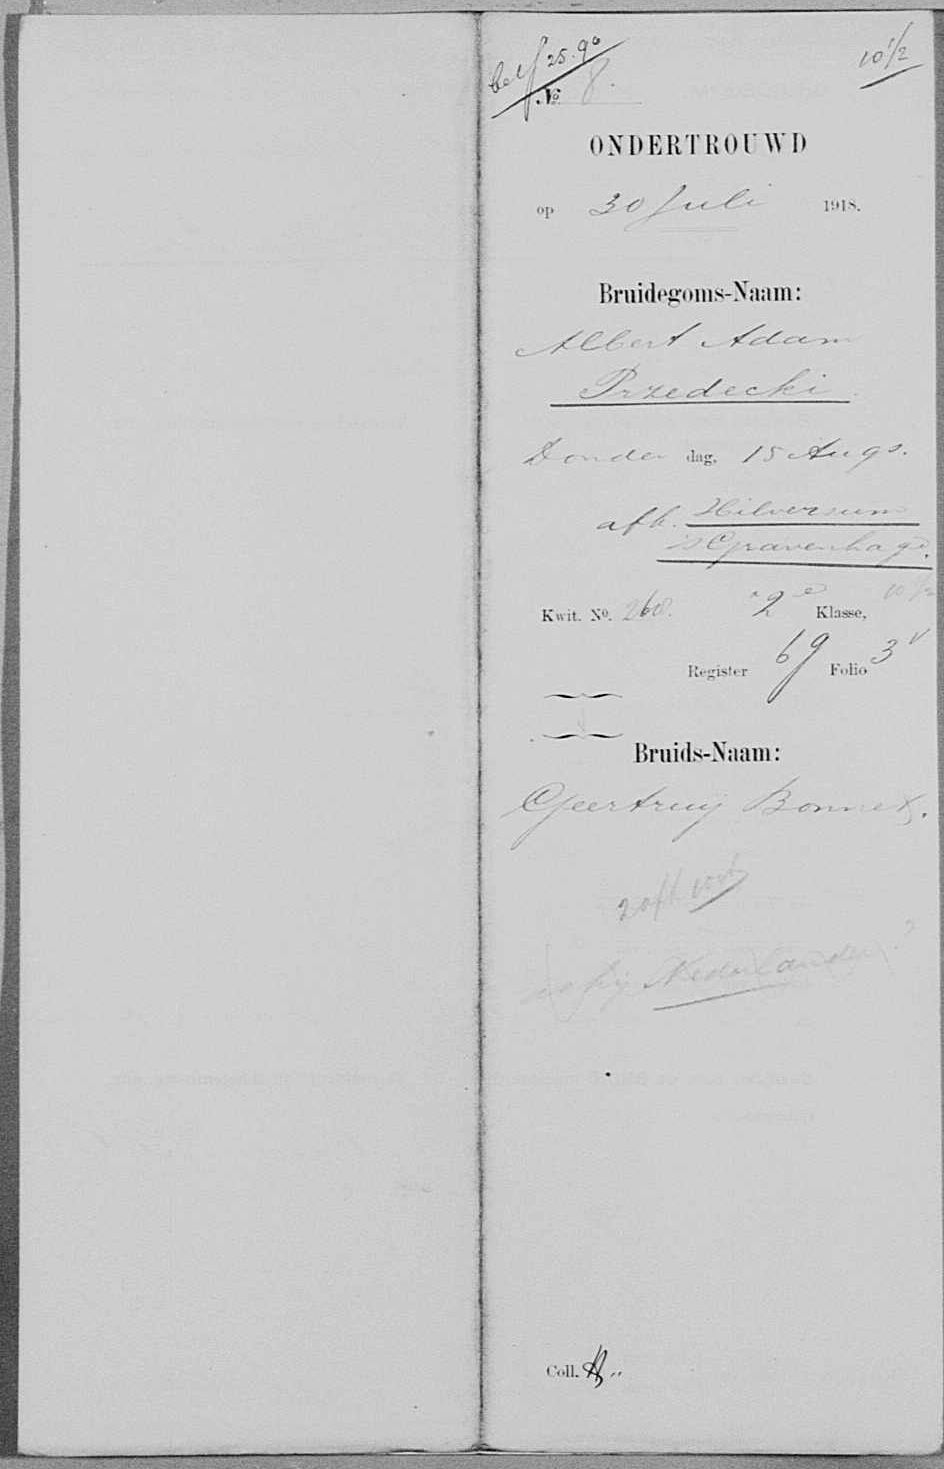 bet f 25.90
10 1/2
No. 8.
ONDERTROUWD
op 30 Juli 1918.
Bruidegoms-Naam:
Albert Adam
Przedecki.
Donder dag, 15 Augs.
afk. Hilversum
's Gravenhage.
10 1/2
Kwit. No. 260. "2e Klasse,
Register 69 Folio 3v
Bruids-Naam:
Geertruij Bonnet.
2 afk
hij Nederlander?
Coll.